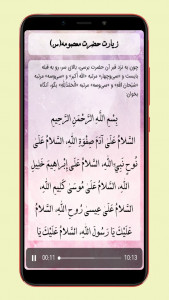 زیارت حضرت معصومه(س)
چون به نزد قبر آن حضرت برسی، بالای سر، رو به قبله
بایست و «سی‌وچهار» مرتبه «اللّه اکبر» و «سی‌وسه» مرتبه
«سُبْحَانَ اللَّهِ» و «سی‌وسه» مرتبه «الْحَمْدُلِلَّهِ» بگو، آنگاه
بخوان:
بِسْمِ اللَّهِ الرَّحْمَنِ الرَّحِيمِ
السَّلامُ عَلَى آدَمَ صِفْوَةِ اللَّهِ، السَّلامُ عَلَى
نُوحٍ نَبِيِّ اللَّهِ، السَّلامُ عَلَى إِبْرَاهِيمَ خَلِيلِ
اللَّهِ، السَّلامُ عَلَى مُوسَى كَلِيمِ اللَّهِ،
السَّلامُ عَلَى عِيسَى رُوحِ اللَّهِ، السَّلامُ
عَلَيْكَ يَا رَسُولَ اللَّهِ، السَّلامُ عَلَيْكَ يَا
00:11 10:13